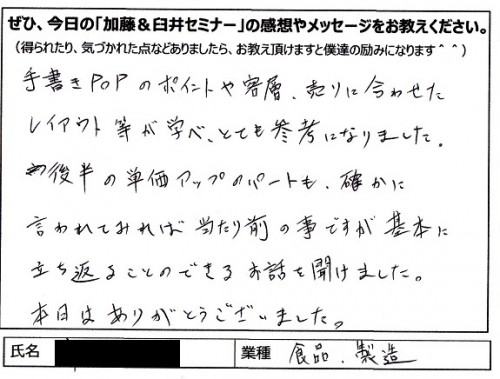 ぜひ、今日の「加藤＆臼井セミナー」の感想やメッセージをお教えください。
（得られたり、気づかれた点などありましたら、お教え頂けますと僕達の励みになります＾＾）
手書きPOPのポイントや客層、売りに合わせた
レイアウト等が学べ、とても参考になりました。
後半の単価アップのパートも、確かに
言われてみれば当たり前の事ですが基本に
立ち返ることのできるお話を聞けました。
本日はありがとうございました。
氏名 業種 食品、製造